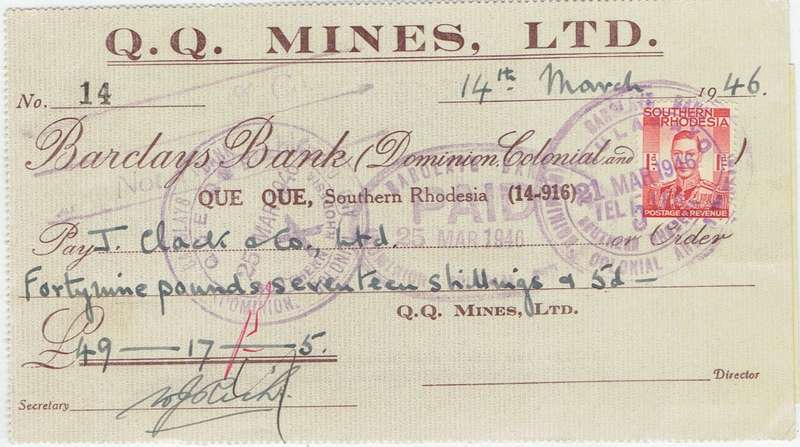 Q.Q. MINES, LTD.
No. 14
14th March 1946.
SOUTHERN
RHODESIA
POSTAGE & REVENUE
Barclays Bank (Dominion, Colonial and
QUE QUE, Southern Rhodesia (14-916)
PAID
25 MAR 1946
21 MAR 1946
25 MAR
Pay J. Clack & Co., Ltd. or Order
Fortynine pounds seventeen shillings & 5d —
Q.Q. MINES, LTD.
£49 — 17 — 5.
Director
Secretary